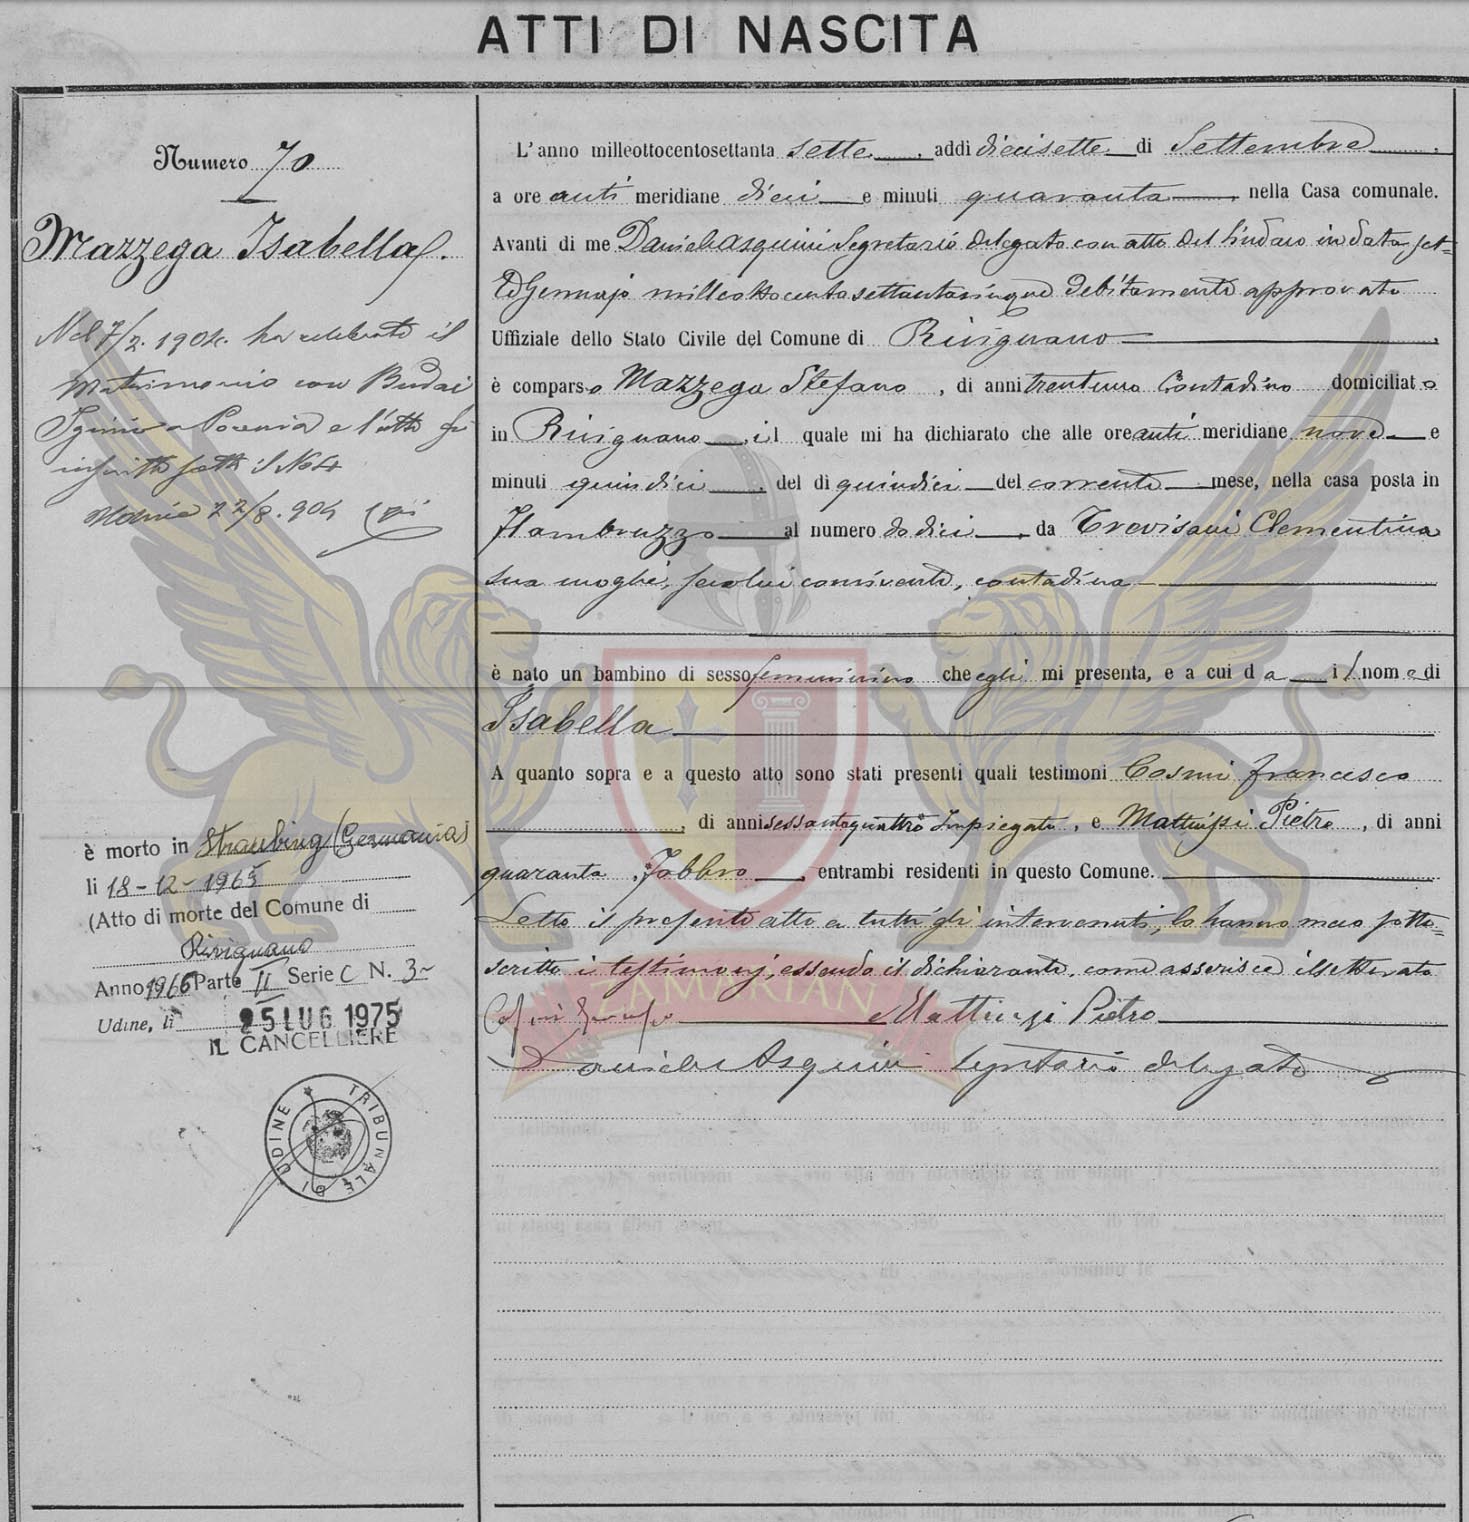 ATTI DI NASCITA
Numero 70
Mazzega Isabella
Nel 7/2. 1904. ha celebrato il
Matrimonio con Budai
Iginio a Pocenia e l'atto fu
inscritto sotto il No 4
Udine 22/8. 904
è morto in Straubing (Germania)
li 18-12-1965
(Atto di morte del Comune di
Rivignano
Anno 1966 Parte II Serie C N. 3
Udine, li 25 LUG 1975
IL CANCELLIERE
TRIBUNALE DI UDINE
L'anno milleottocentosettanta sette, addi diecisette di Settembre
a ore anti meridiane dieci e minuti quaranta nella Casa comunale.
Avanti di me Daniele Asquini Segretario delegato con atto del Sindaco in data set=
te Gennajo milleottocentosettantacinque debitamente approvato
Uffiziale dello Stato Civile del Comune di Rivignano
è comparso Mazzega Stefano, di anni trentuno Contadino domiciliato
in Rivignano, il quale mi ha dichiarato che alle ore anti meridiane nove e
minuti quindici, del di quindici del corrente mese, nella casa posta in
Flambruzzo al numero dodici, da Trevisani Clementina
sua moglie, seco lui convivente, contadina
è nato un bambino di sesso femminino che egli mi presenta, e a cui da il nome di
Isabella
A quanto sopra e a questo atto sono stati presenti quali testimoni Cosmi Francesco
, di anni sessantaquattro Impiegato, e Mattiussi Pietro, di anni
quaranta, Fabbro, entrambi residenti in questo Comune.
Letto il presente atto a tutti gli intervenuti, lo hanno meco sotto=
scritto i testimonj, essendo il dichiarante, come asserisce illetterato
Mattiussi Pietro
Daniele Asquini Segretario delegato
ZAMARIAN